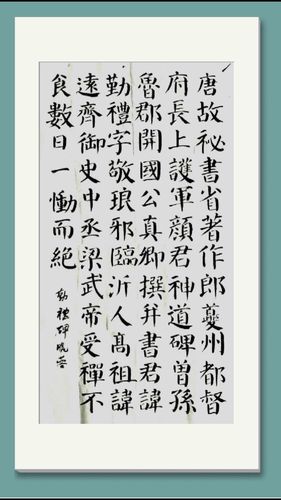 唐故祕書省著作郎夔州都督
府長上護軍顏君神道碑曾孫
魯郡開國公真卿撰并書君諱
勤禮字敬琅邪臨沂人高祖諱
遠齊御史中丞梁武帝受禪不
食數日一慟而絕
勤禮碑